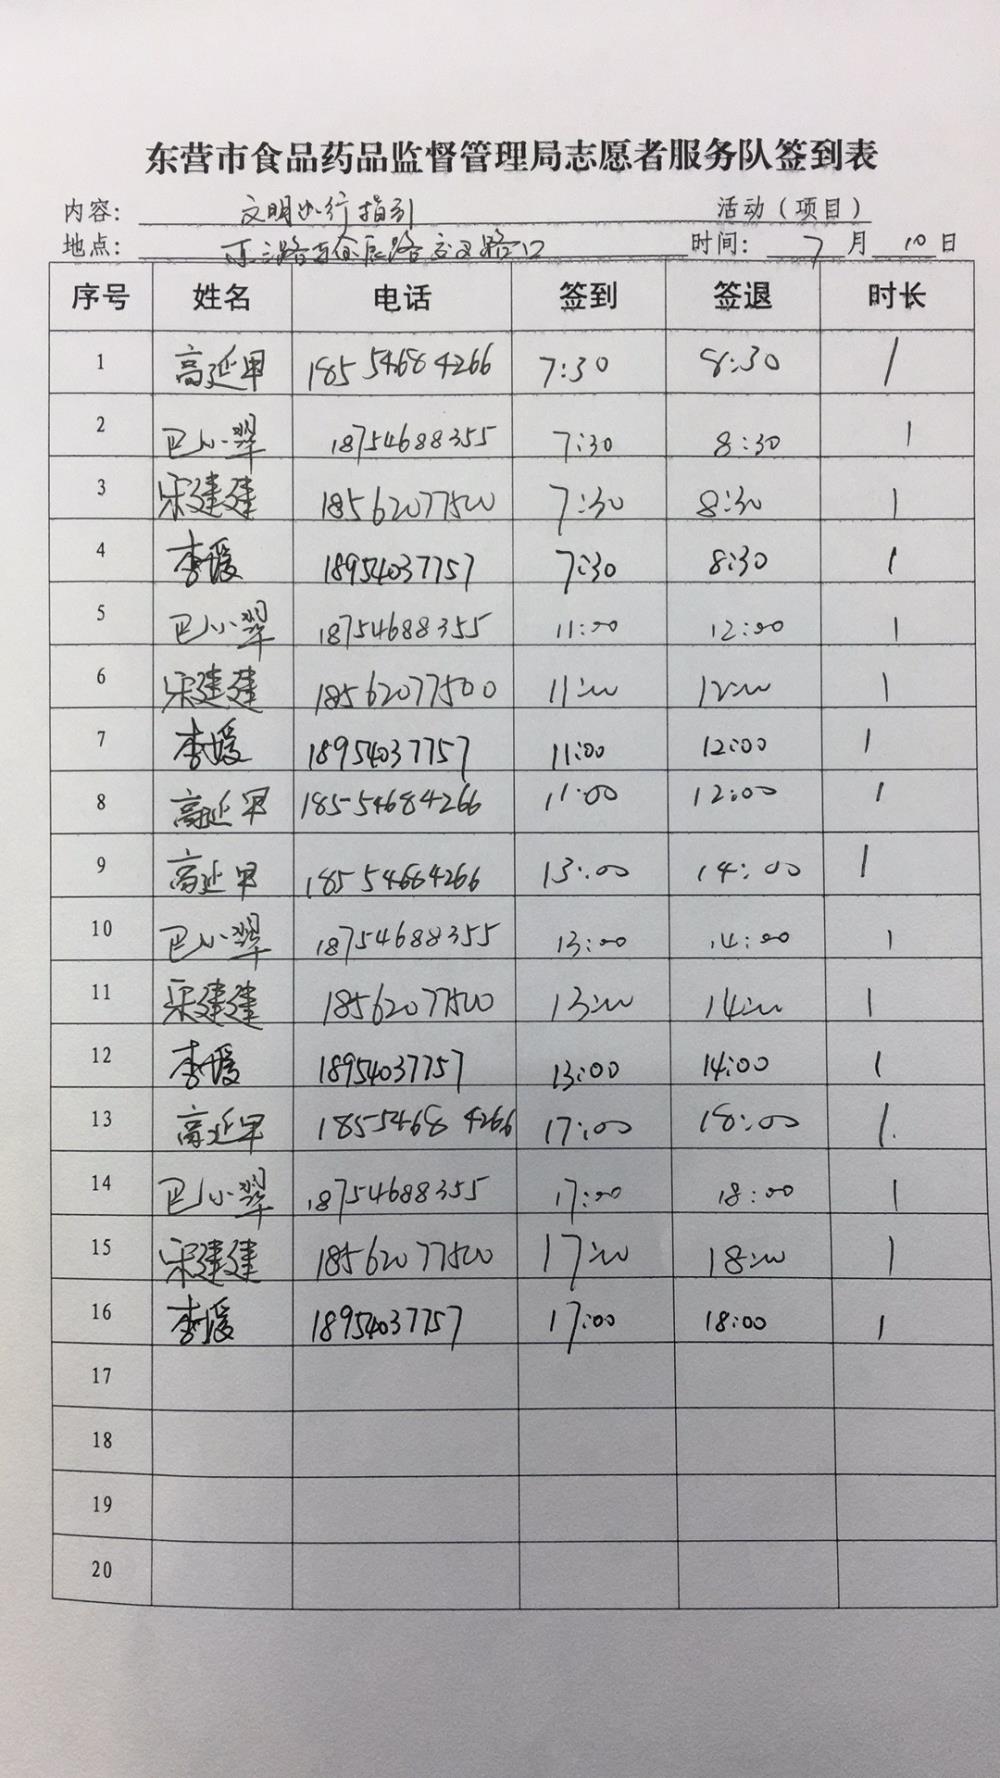 东营市食品药品监督管理局志愿者服务队签到表
内容: 文明出行指引 活动（项目）
地点: 东三路与 路交叉路口 时间: 7 月 10 日
序号 姓名 电话 签到 签退 时长
1 高延甲 18554684266 7:30 8:30 1
2 巴小翠 18754688355 7:30 8:30 1
3 宋建建 18562077500 7:30 8:30 1
4 李媛 18954037757 7:30 8:30 1
5 巴小翠 18754688355 11:00 12:00 1
6 宋建建 18562077500 11:00 12:00 1
7 李媛 18954037757 11:00 12:00 1
8 高延甲 18554684266 11:00 12:00 1
9 高延甲 18554684266 13:00 14:00 1
10 巴小翠 18754688355 13:00 14:00 1
11 宋建建 18562077500 13:00 14:00 1
12 李媛 18954037757 13:00 14:00 1
13 高延甲 18554684266 17:00 18:00 1.
14 巴小翠 18754688355 17:00 18:00 1
15 宋建建 18562077500 17:00 18:00 1
16 李媛 18954037757 17:00 18:00 1
17
18
19
20